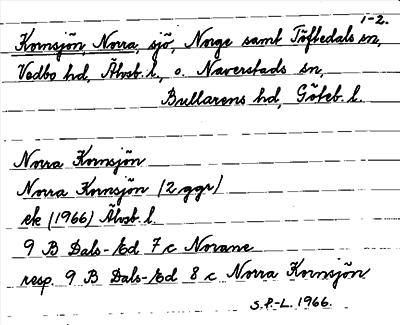 1-2.
Kornsjön, Norra, sjö, Norge samt Töftedals sn,
Vedbo hd, Älvsb. l., o. Naverstads sn,
Bullarens hd, Göteb. l.
Norra Kornsjön
Norra Kornsjön (2 ggr)
ek (1966) Älvsb. l.
9 B Dals-Ed 7 c Norane
resp. 9 B Dals-Ed 8 c Norra Kornsjön
S.P-L. 1966.